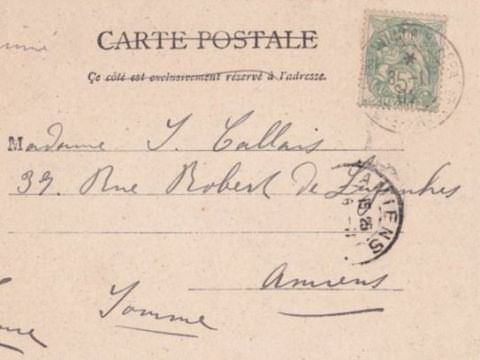 CARTE POSTALE
Ce côté est exclusivement réservé à l'adresse.
Madame J. Callais
37, Rue Robert de Luzarches
Amiens
Somme
AMIENS
5